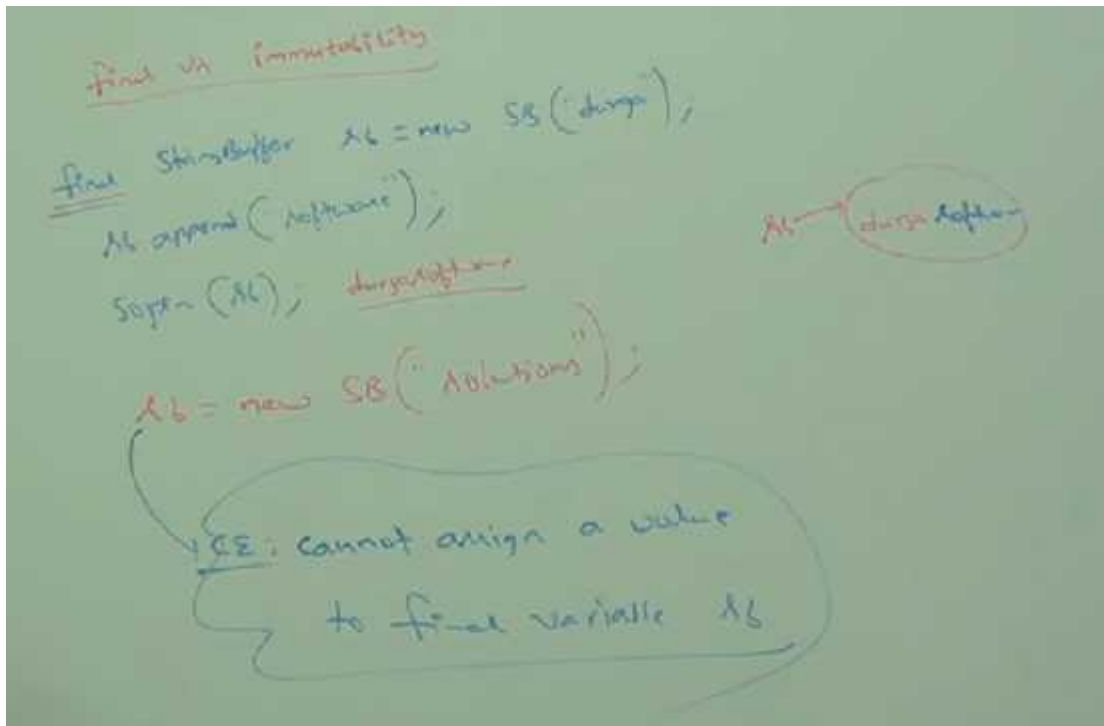 final vs immutability
final StringBuffer sb = new SB("durga");
sb.append("software");
sopln(sb); durgasoftware
sb → durga software
sb = new SB("solutions");
CE: cannot assign a value
to final variable sb